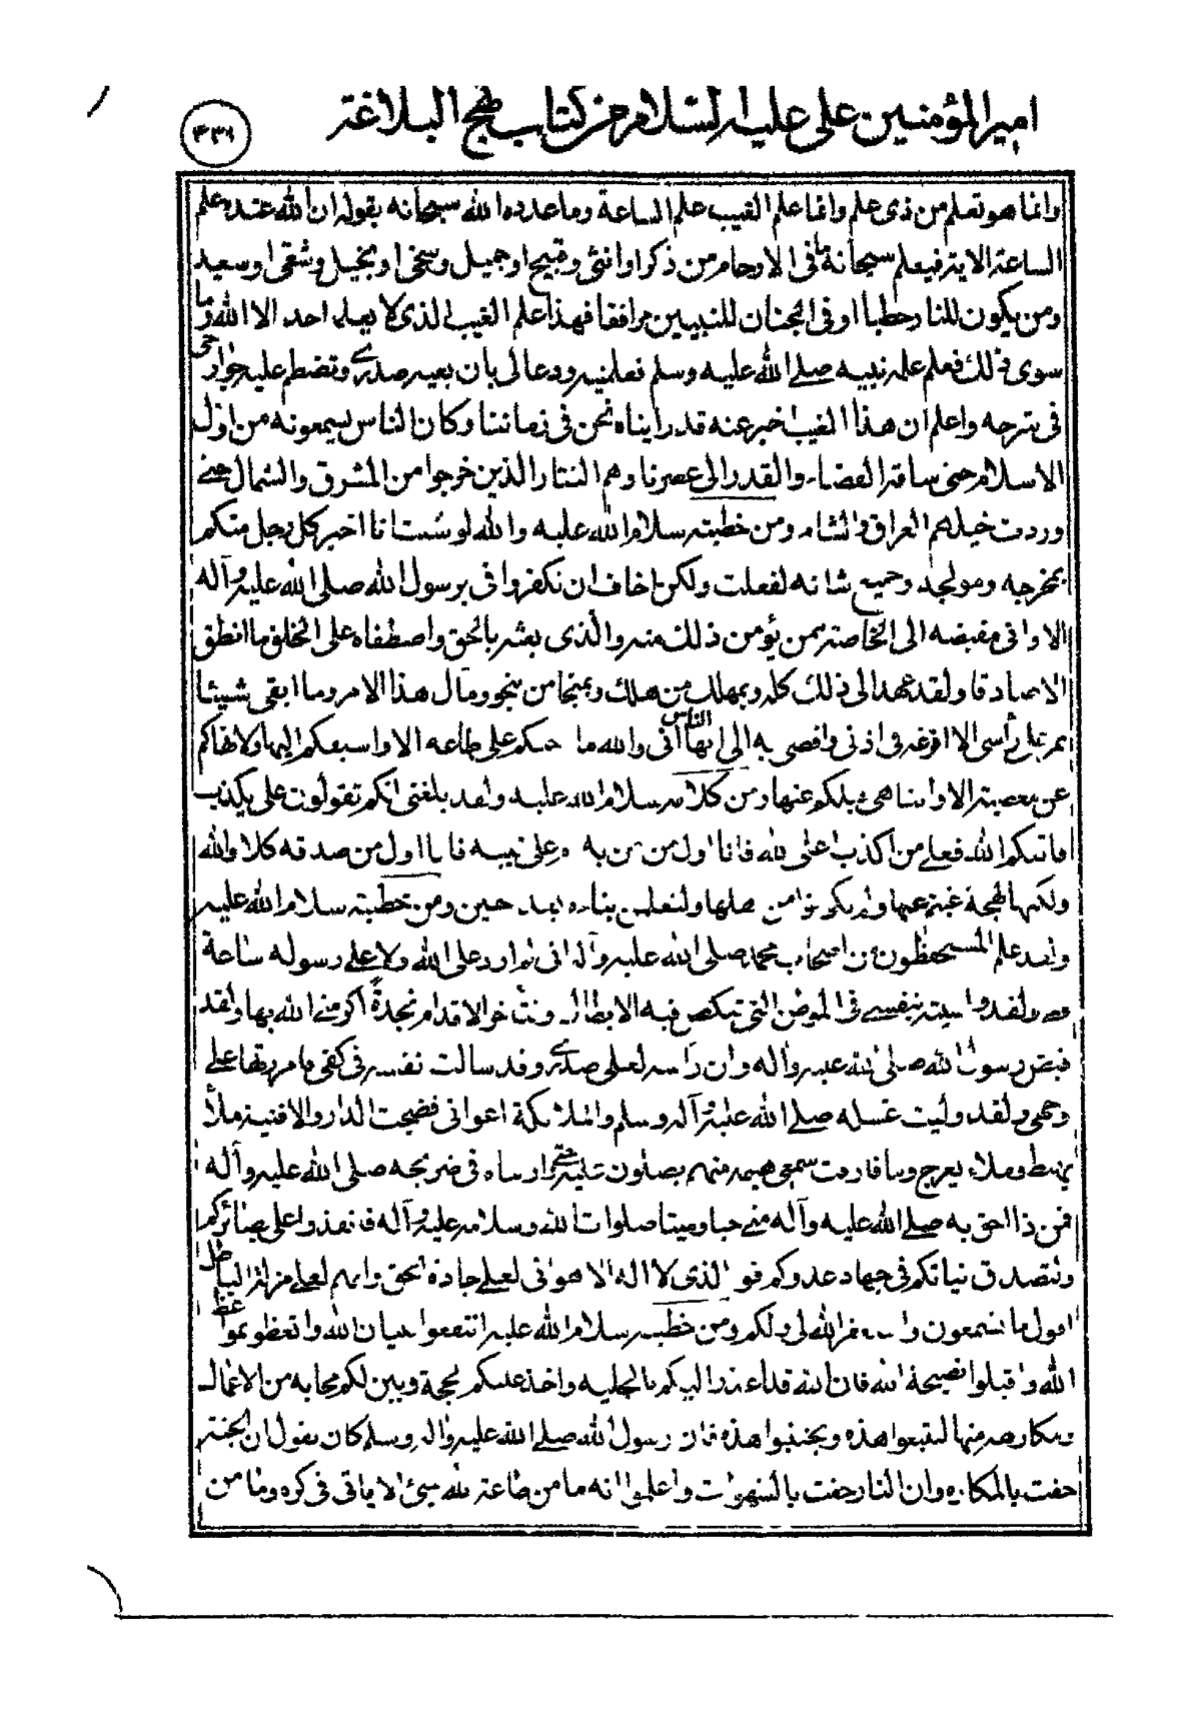 امير المؤمنين على عليه السلام من كتاب نهج البلاغة
٤٣٩
وانما هو تعلم من ذى علم وانما علم الغيب علم الساعة وما عدده الله سبحانه بقوله ان الله عنده علم
الساعة الاية فيعلم سبحانه ما فى الارحام من ذكر او انثى وقبيح او جميل وسخى او بخيل وشقى او سعيد
ومن يكون للنار حطبا او فى الجنان للنبيين مرافقا فهذا علم الغيب الذى لا يعلمه احد الا الله وما
سوى ذلك فعلم علمه نبيه صلى الله عليه وسلم فعلمنيه ودعا لى بان يعيه صدرى وتضطم عليه جوارحى
فى شرحه واعلم ان هذا الغيب اخبر عنه قد رايناه نحن فى زماننا وكان الناس يسمعونه من اول
الاسلام حتى ساقه القضاء والقدر الى عصرنا وهم التتار الذين خرجوا من المشرق والشمال حتى
وردت خيلهم العراق والشام ومن خطبته سلام الله عليه والله لو شئت ان اخبر كل رجل منكم
بمخرجه ومولجه وجميع شانه لفعلت ولكن اخاف ان تكفروا فى برسول الله صلى الله عليه وآله
الا وانى مفيضه الى الخاصة ممن يؤمن ذلك منه والذى بعثه بالحق واصطفاه على الخلق ما انطق
الا صادقا ولقد عهد الى ذلك كله وبمهلك من هلك وبمنجا من ينجو ومآل هذا الامر وما ابقى شيئا
يمر على رأسى الا افرغه فى اذنى وافضى به الى ايها الناس انى والله ما حثكم على طاعه الا واسبقكم اليها ولا انهاكم
عن معصية الا واتناهى قبلكم عنها ومن كلامه سلام الله عليه ولقد بلغنى انكم تقولون على يكذب
قاتلكم الله فعلى من اكذب اعلى الله فانا اول من امن به ام على نبيه فانا اول من صدقه كلا والله
ولكنها لهجة غبتم عنها ولم تكونوا من اهلها ولتعلمن نباءه بعد حين ومن خطبته سلام الله عليه
ولقد علم المستحفظون من اصحاب محمد صلى الله عليه وآله انى لم ارد على الله ولا على رسوله ساعة
قط ولقد واسيته بنفسى فى المواطن التى تنكص فيه الابطال وتتاخر الاقدام نجدة اكرمنى الله بها ولقد
قبض رسول الله صلى الله عليه وآله وان راسه لعلى صدرى وقد سالت نفسه فى كفى فامررتها على
وجهى ولقد وليت غسله صلى الله عليه وآله وسلم والملائكة اعوانى فضجت الدار والافنية ملأ
يهبط وملاء يعرج وما فارقت سمعى هينمة منهم يصلون عليه حتى واريناه فى ضريحه صلى الله عليه وآله
فمن ذا احق به صلى الله عليه وآله منى حيا وميتا صلوات الله وسلامه عليه وآله فانفذوا على بصائركم
ولتصدق نياتكم فى جهاد عدوكم فو الذى لا اله الا هو انى لعلى جادة الحق وانهم لعلى مزلة الباطل
اقول ما تسمعون واستغفر الله لى ولكم ومن خطبته سلام الله عليه انتفعوا ببيان الله واتعظوا بمواعظ
الله واقبلوا نصيحة الله فان الله قد اعذر اليكم بالجليه واخذ عليكم لحجة وبين لكم محابه من الاعمال
ومكارهه منها لتتبعوا هذه وتجتنبوا هذه فان رسول الله صلى الله عليه واله وسلم كان يقول ان الجنة
حفت بالمكاره وان النار حفت بالشهوات واعلموا انه ما من طاعة الله شئ الا ياتى فى كره وما من